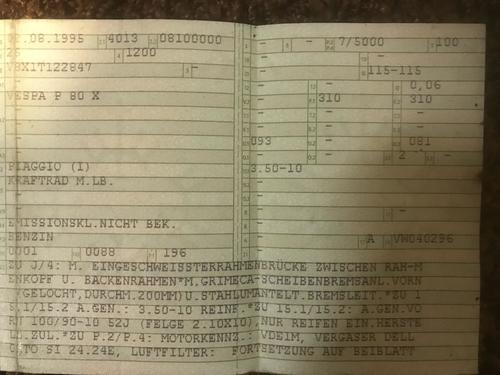 .08.1995 4013 08100000 - - 7/5000 100
1200 - -
V8X1T122847 - 115-115
- - 0,06
VESPA P 80 X 310 310
- - -
- 093 - 081
- - 2 -
PIAGGIO (I) 3.50-10
KRAFTRAD M.LB. -
- -
- - -
EMISSIONSKL.NICHT BEK. -
BENZIN A VW040296
0001 0088 196
ZU J/4: M. EINGESCHWEISSTERRAHMENBRÜCKE ZWISCHEN RAH-M
ENKOPF U. BACKENRAHMEN*M.GRIMECA-SCHEIBENBREMSANL.VORN
GELOCHT,DURCHM.200MM)U.STAHLUMANTELT.BREMSLEIT.*ZU 1
5.1/15.2 A.GEN.: 3.50-10 REINF.*ZU 15.1/15.2: A.GEN.VO
RN 100/90-10 52J (FELGE 2.10X10),NUR REIFEN EIN.HERSTE
ZUL.*ZU P.2/P.4: MOTORKENNZ.: VDE1M, VERGASER DELL
TO SI 24.24E, LUFTFILTER: FORTSETZUNG AUF BEIBLATT